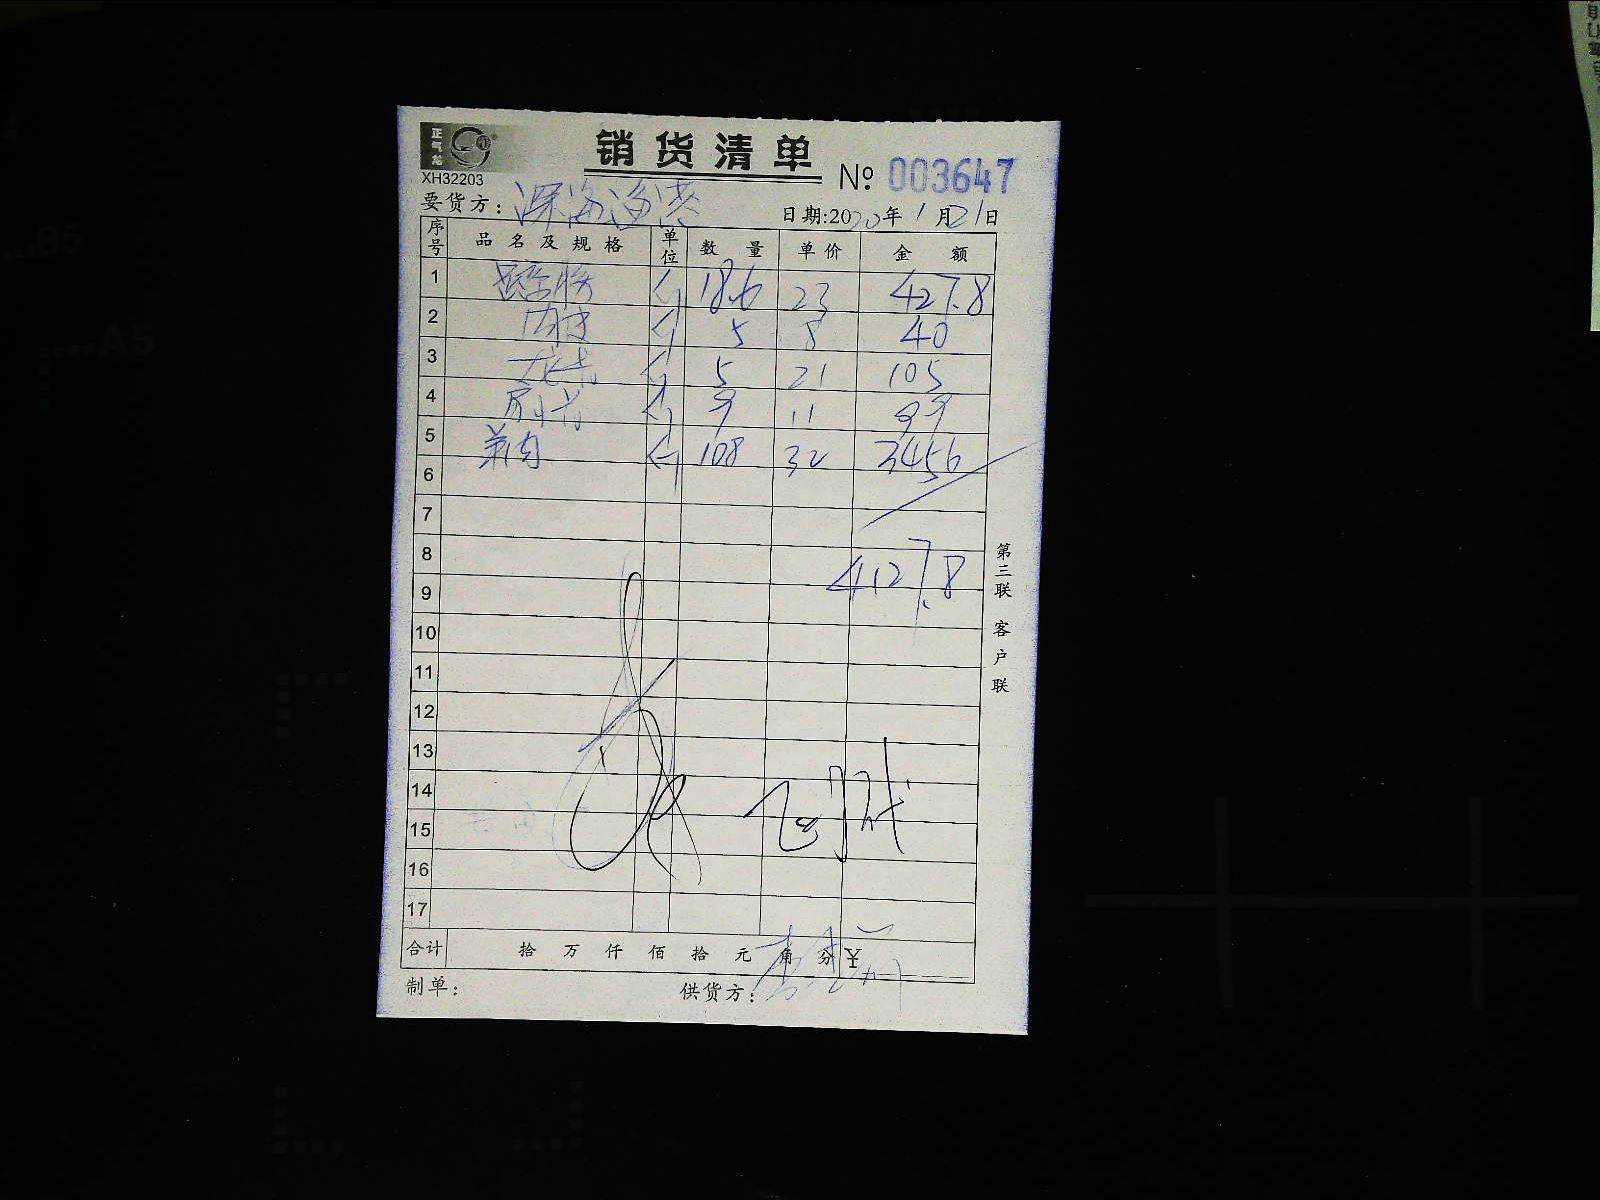 正气龙
XH32203
销货清单
№ 003647
要货方：深海渔港
日期:2020年1月21日
序号 品名及规格 单位 数量 单价 金额
1 斤 18.6 23 427.8
2 斤 5 8 40
3 龙骨 斤 5 21 105
4 斤 9 11 99
5 羊肉 斤 108 32 3456
6
7
8
4127.8
9
10
11
12
13
14
15
16
17
合计 拾 万 仟 佰 拾 元 角 分 ¥
制单：
供货方：
第三联 客户联
B5
A5